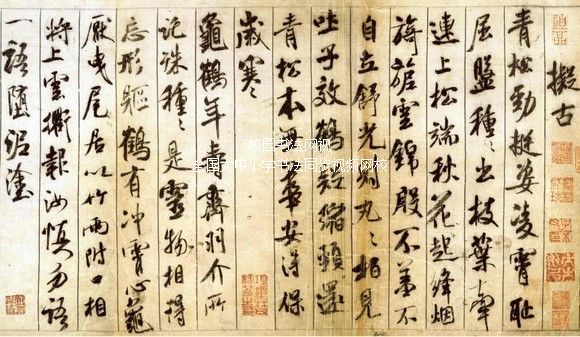 擬古
青松勁挺姿凌霄恥
屈盤種〻出枝葉牽
連上松端秋花起絳烟
旖旎雲錦殷不羞不
自立舒光射丸〻柏見
吐子效鶴疑縮頸還
青松本無華安得保
歲寒
龜鶴年壽齊羽介所
託殊種〻是靈物相得
忘形軀鶴有沖霄心龜
厭曳尾居以竹兩附口相
將上雲衢報汝慎勿語
一語墮泥塗
校园书法网
全国中小学书法同步视频网校